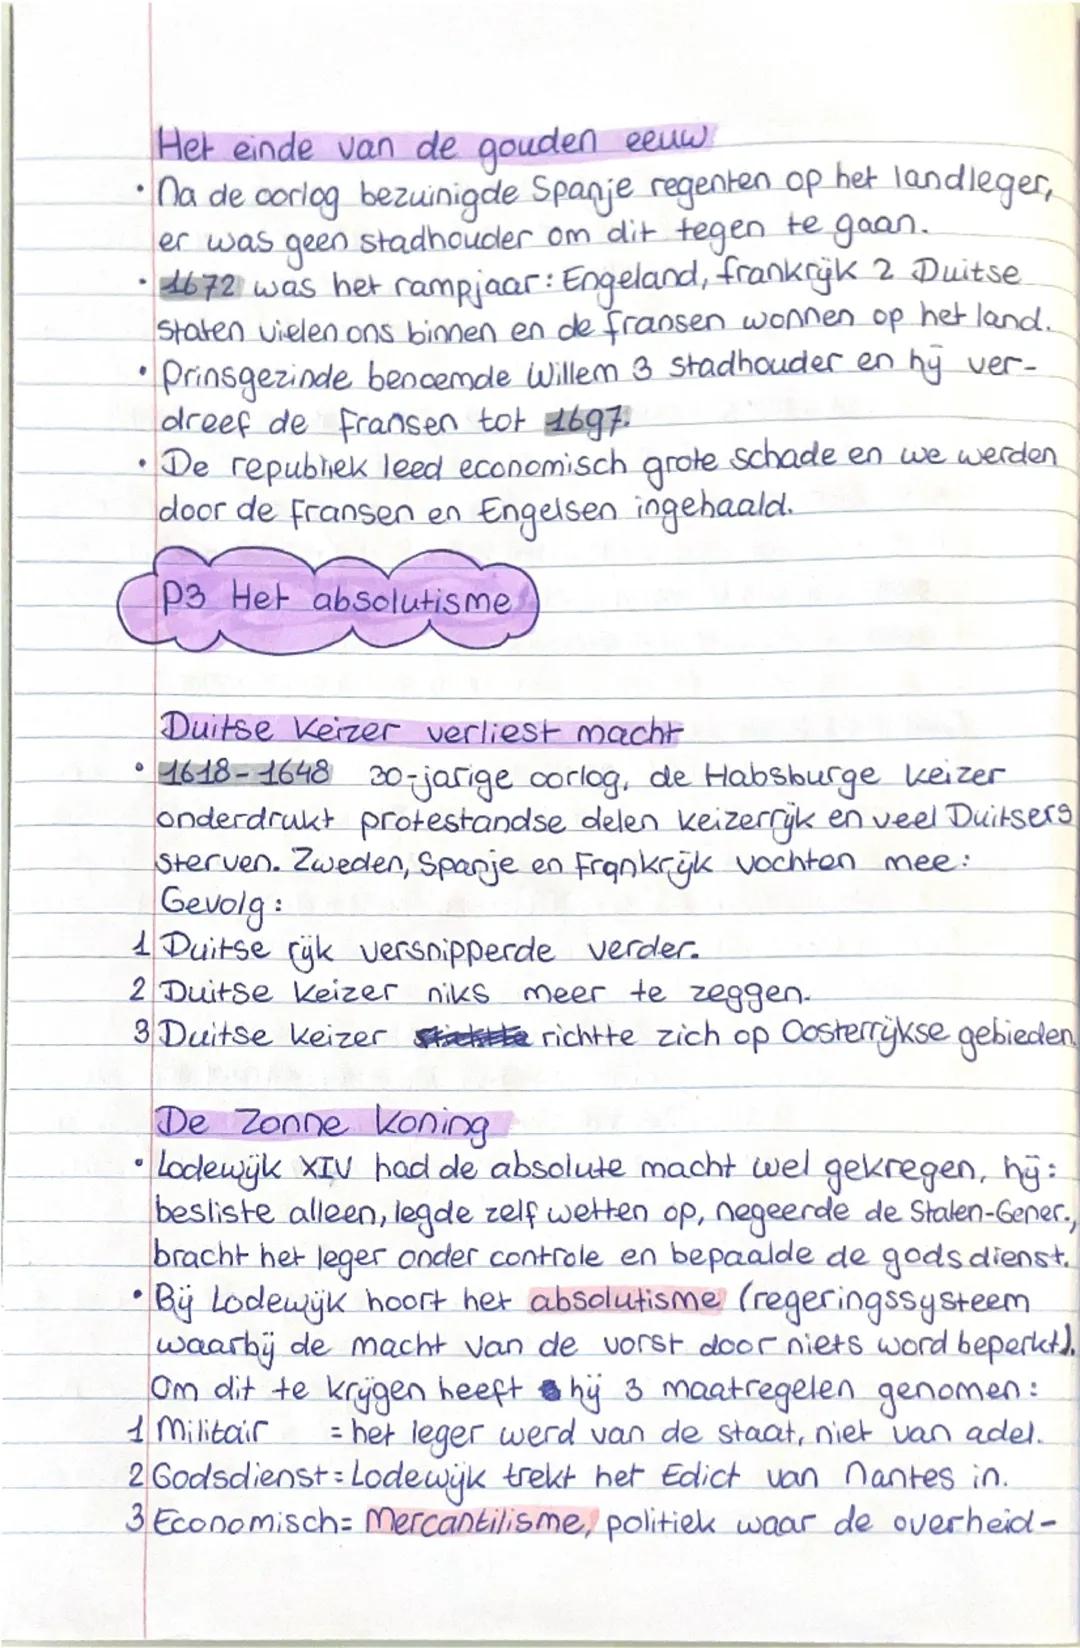 Het einde van de gouden eeuw
• Na de oorlog bezuinigde Spanje regenten op het landleger,
er was geen stadhouder om dit tegen te gaan.
• 1672 was het rampjaar: Engeland, frankrijk 2 Duitse
staten vielen ons binnen en de fransen wonnen op het land.
• Prinsgezinde benoemde Willem 3 stadhouder en hij ver-
dreef de Fransen tot 1697.
• De republiek leed economisch grote schade en we werden
door de Fransen en Engelsen ingehaald.
P3 Het absolutisme
Duitse Keizer verliest macht
• 1618-1648 30-jarige oorlog, de Habsburge keizer
onderdrukt protestandse delen keizerrijk en veel Duitsers
sterven. Zweden, Spanje en Frankrijk vochten mee:
Gevolg:
1 Duitse rijk versnipperde verder.
2 Duitse keizer niks meer te zeggen.
3 Duitse keizer richtte zich op Oosterrijkse gebieden.
De Zonne Koning
• Lodewijk XIV had de absolute macht wel gekregen, hij:
besliste alleen, legde zelf wetten op, negeerde de Staten-Gener.,
bracht het leger onder controle en bepaalde de godsdienst.
• Bij Lodewijk hoort het absolutisme (regeringssysteem
waarbij de macht van de vorst door niets word beperkt).
Om dit te krijgen heeft hij 3 maatregelen genomen:
1 Militair = het leger werd van de staat, niet van adel.
2 Godsdienst = Lodewijk trekt het Edict van Nantes in.
3 Economisch = Mercantilisme, politiek waar de overheid-